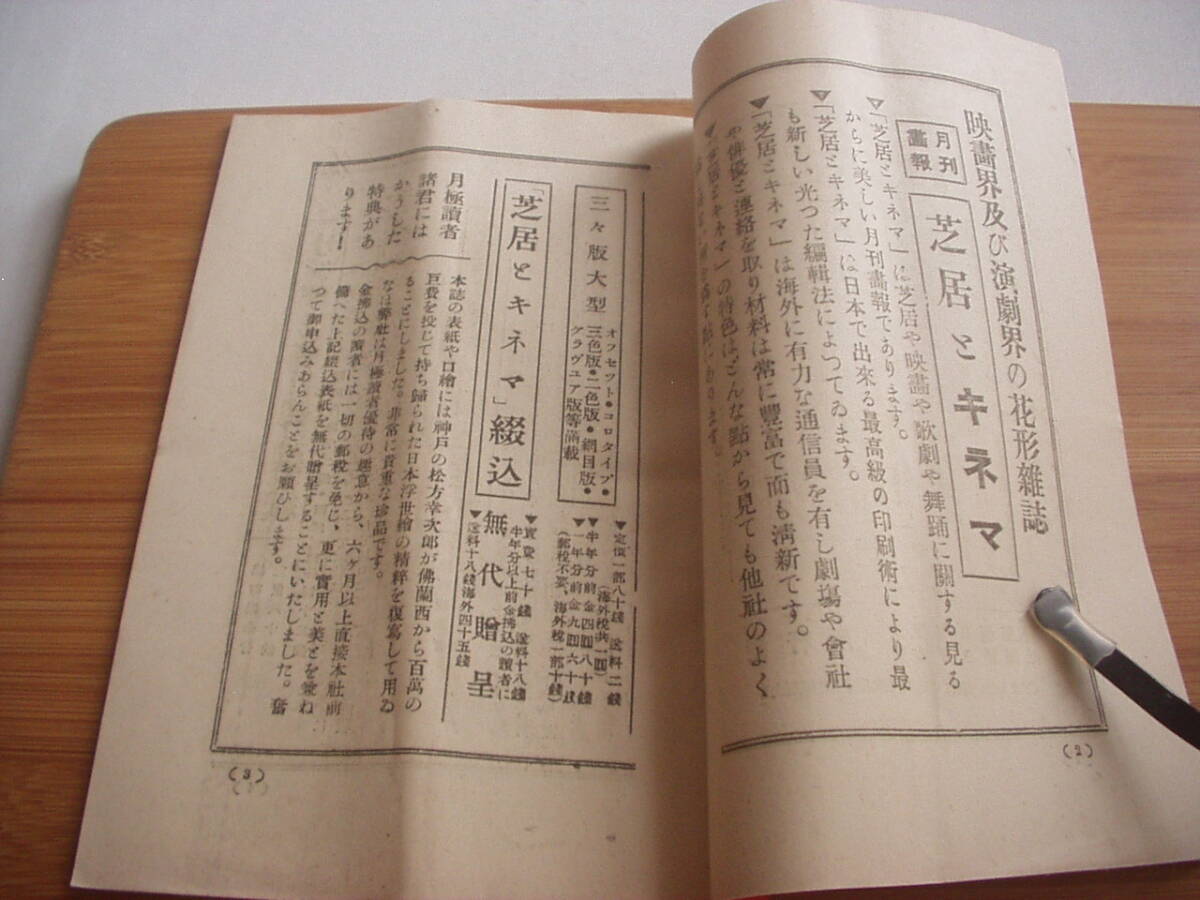 映畫界及び演劇界の花形雜誌
月刊
畫報
芝居とキネマ
▼「芝居とキネマ」は芝居や映畫や歌劇や舞踊に關する見る
からに美しい月刊畫報であります。
▼「芝居とキネマ」は日本で出來る最高級の印刷術により最
も新しい光つた編輯法によつてゐます。
▼「芝居とキネマ」は海外に有力な通信員を有し劇場や會社
や俳優と連絡を取り材料は常に豐富で而も淸新です。
▼「芝居とキネマ」の特色はどんな點から見ても他社のよく
(2)
三々版大型
オフセツト●コロタイプ●
三色版●二色版●網目版●
グラヴユア版等滿載
▼定價一部八十錢 送料二錢
(海外稅共一圓)
▼半年分前金四圓八十錢
▼一年分前金九圓六十錢
(郵稅不要、海外稅一部十錢)
「芝居とキネマ」綴込
▼實費七十錢 送料十八錢
半年分以上前金拂込の讀者に
無代贈呈
▼送料十八錢海外四十五錢
月極讀者
諸君には
かうした
特典があ
ります!
本誌の表紙や口繪には神戸の松方幸次郎が佛蘭西から百萬の
巨費を投じて持ち歸られた日本浮世繪の精粹を復寫して用ゐ
ることにしました。非常に貴重な珍品です。
なほ弊社は月極讀者優待の趣意から、六ヶ月以上直接本社前
金拂込の讀者には一切の郵稅を免じ、更に實用と美とを兼ね
備へた上記綴込表紙を無代贈呈することにいたしました。奮
つて御申込みあらんことをお願ひします。
(3)